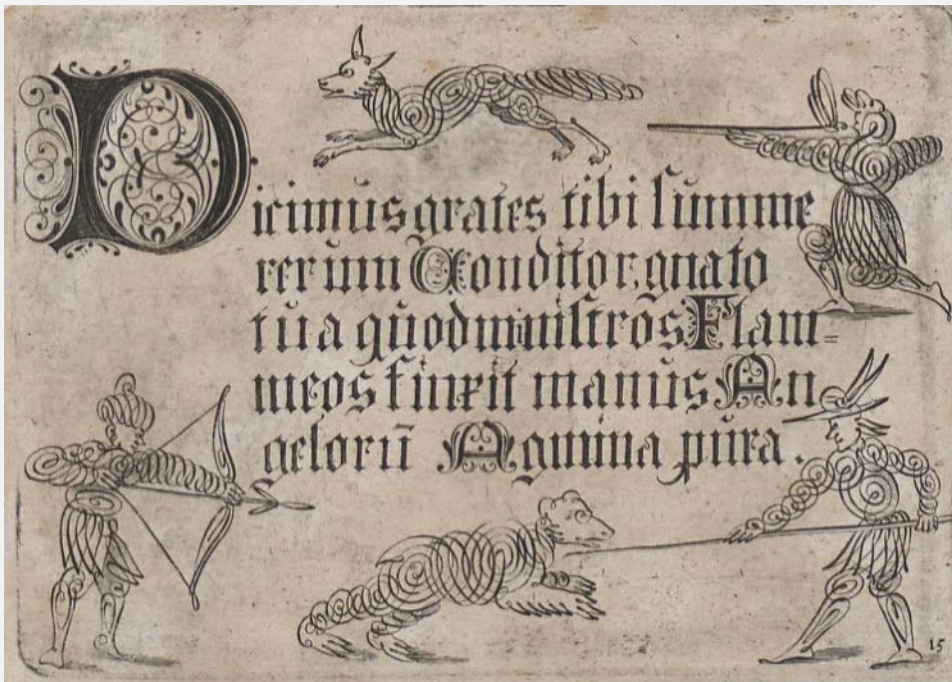 Dicimus grates tibi summe
rerum Conditor, gnato
tua quod ministros Flam=
meos finxit manus An
gelorū Agmina pura.
15